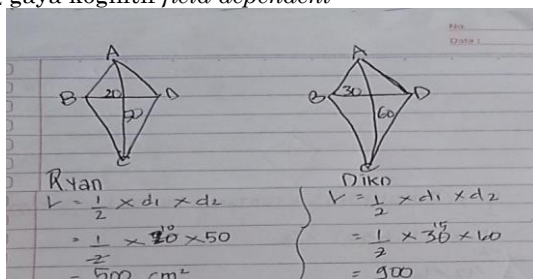 gaya kognitif field dependent
No.
Date :
A
B 20 D
50
C
Ryan
L = 1/2 × d1 × d2
= 1/2 × 20 10 × 50
= 500 cm²
A
B 30 D
60
C
Diko
L = 1/2 × d1 × d2
= 1/2 × 30 15 × 60
= 900